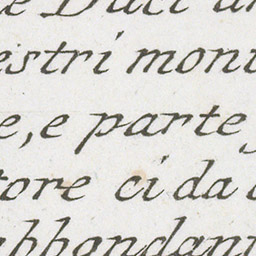 e Duci un
estri monu
e, e parte
tore ci da
abbondan